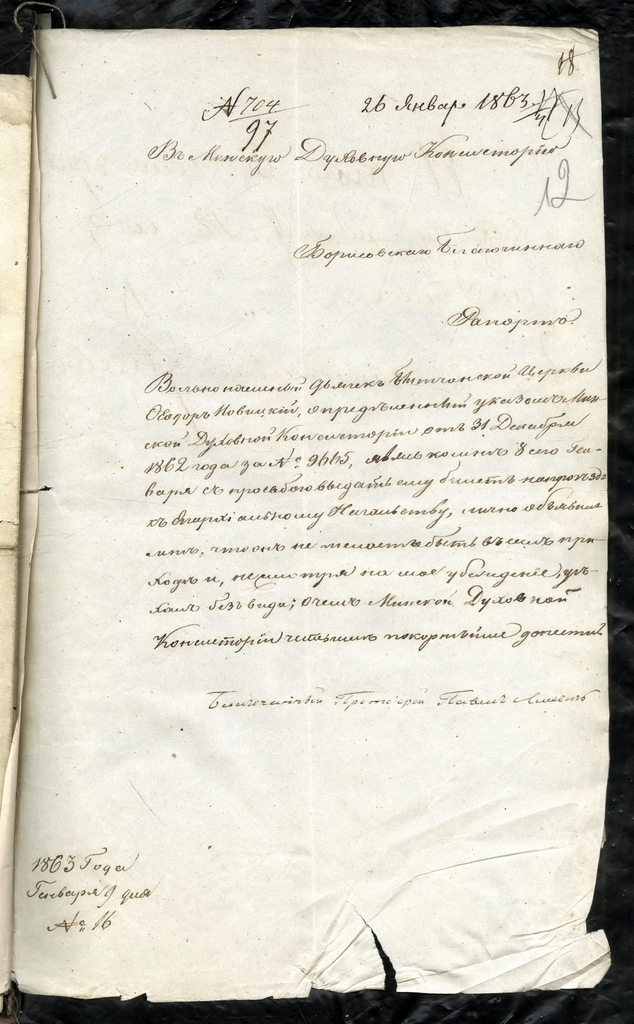 18
№ 704
97
26 Январ 1863
12
Въ Минскую Духовную Консисторію
Борисовскаго Благочиннаго
Рапортъ.
Вольнонаемный дьячекъ Церкви
Ѳеодоръ Новицкій, опредѣленный указомъ Мин-
ской Духовной Консисторіи отъ 31 Декабря
1862 года за № 9665, явясь ко мнѣ 8 сего Ген-
варя съ просьбою выдать ему билетъ на проѣздъ
къ Епархіальному Начальству, лично объявилъ
мнѣ, что онъ не желаетъ быть въ семъ при-
ходѣ и, несмотря на мое убежденіе, уѣ-
халъ безъ вида; о чемъ Минской Духовной
Консисторіи честь имѣю покорнѣйше донести.
Благочинный Протоіерей Павелъ
1863 Года
Генваря 9 дня
№ 16